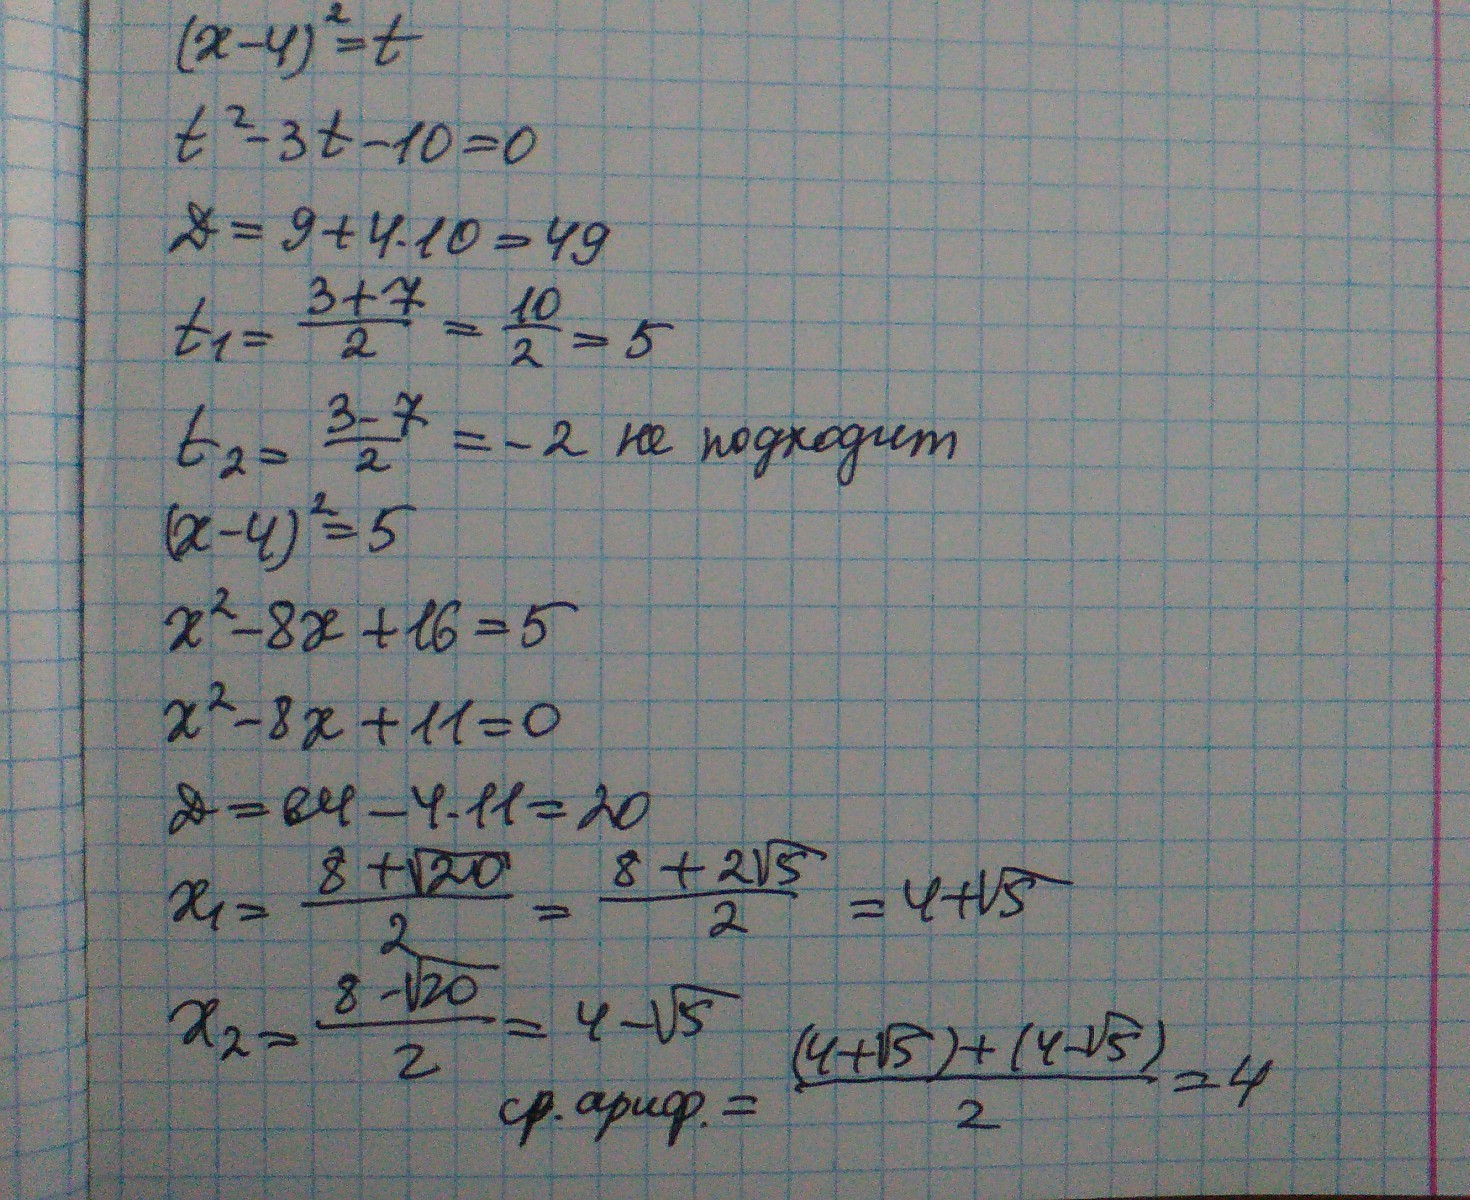 (x-4)²=t
t²-3t-10=0
D=9+4·10=49
t₁=(3+7)/2=10/2=5
t₂=(3-7)/2=-2 не подходит
(x-4)²=5
x²-8x+16=5
x²-8x+11=0
D=64-4·11=20
x₁=(8+√20)/2=(8+2√5)/2=4+√5
x₂=(8-√20)/2=4-√5
ср. ариф.=((4+√5)+(4-√5))/2=4